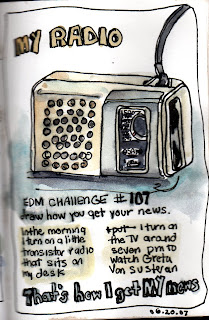 MY RADIO
EDM CHALLENGE # 107
draw how you get your news.
In the morning
I turn on a little
transistor radio
that sits on
my desk
I turn on
the TV around
seven pm to
watch Greta
Von Sustran
That's how I get MY news
06.20.07